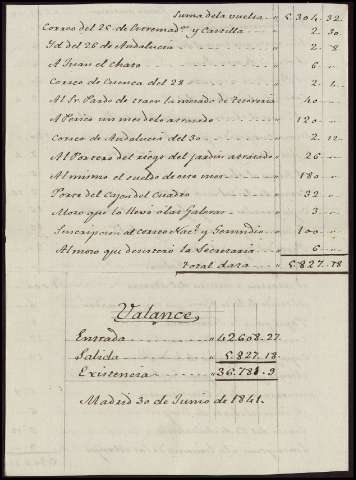 Suma de la vuelta „ 5.304. 32.
Correo del 25 de Extremad.ª y Castilla „ 2. 30
Yd del 26 de Andalucia „ 2. 8
A Juan el chato „ 6 „
Correo de Cuenca del 28 „ 2. 1.
Al Sr. Pardo de traer la mesada de Tesoreria 40 „
A Perico un mes de lo atrasado „ 120 „
Correo de Andalucia del 30 „ 2. 12
Al Portero del riego del jardin atrasado „ 26 „
Al mismo el sueldo de este mes „ 180 „
Porte del Cajon del Cuadro „ 32 „
Mozo que lo llevó á las Galeras „ 3 „
Suscripcion al correo Nac.l y Gerundio „ 100 „
Al mozo que desesteró la Secretaria „ 6 „
Total data „ 5.827. 18
Valance,
Entrada „ 42608. 27.
Salida „ 5.827. 18.
Existencia „ 36.781. 9
Madrid 30 de Junio de 1841.